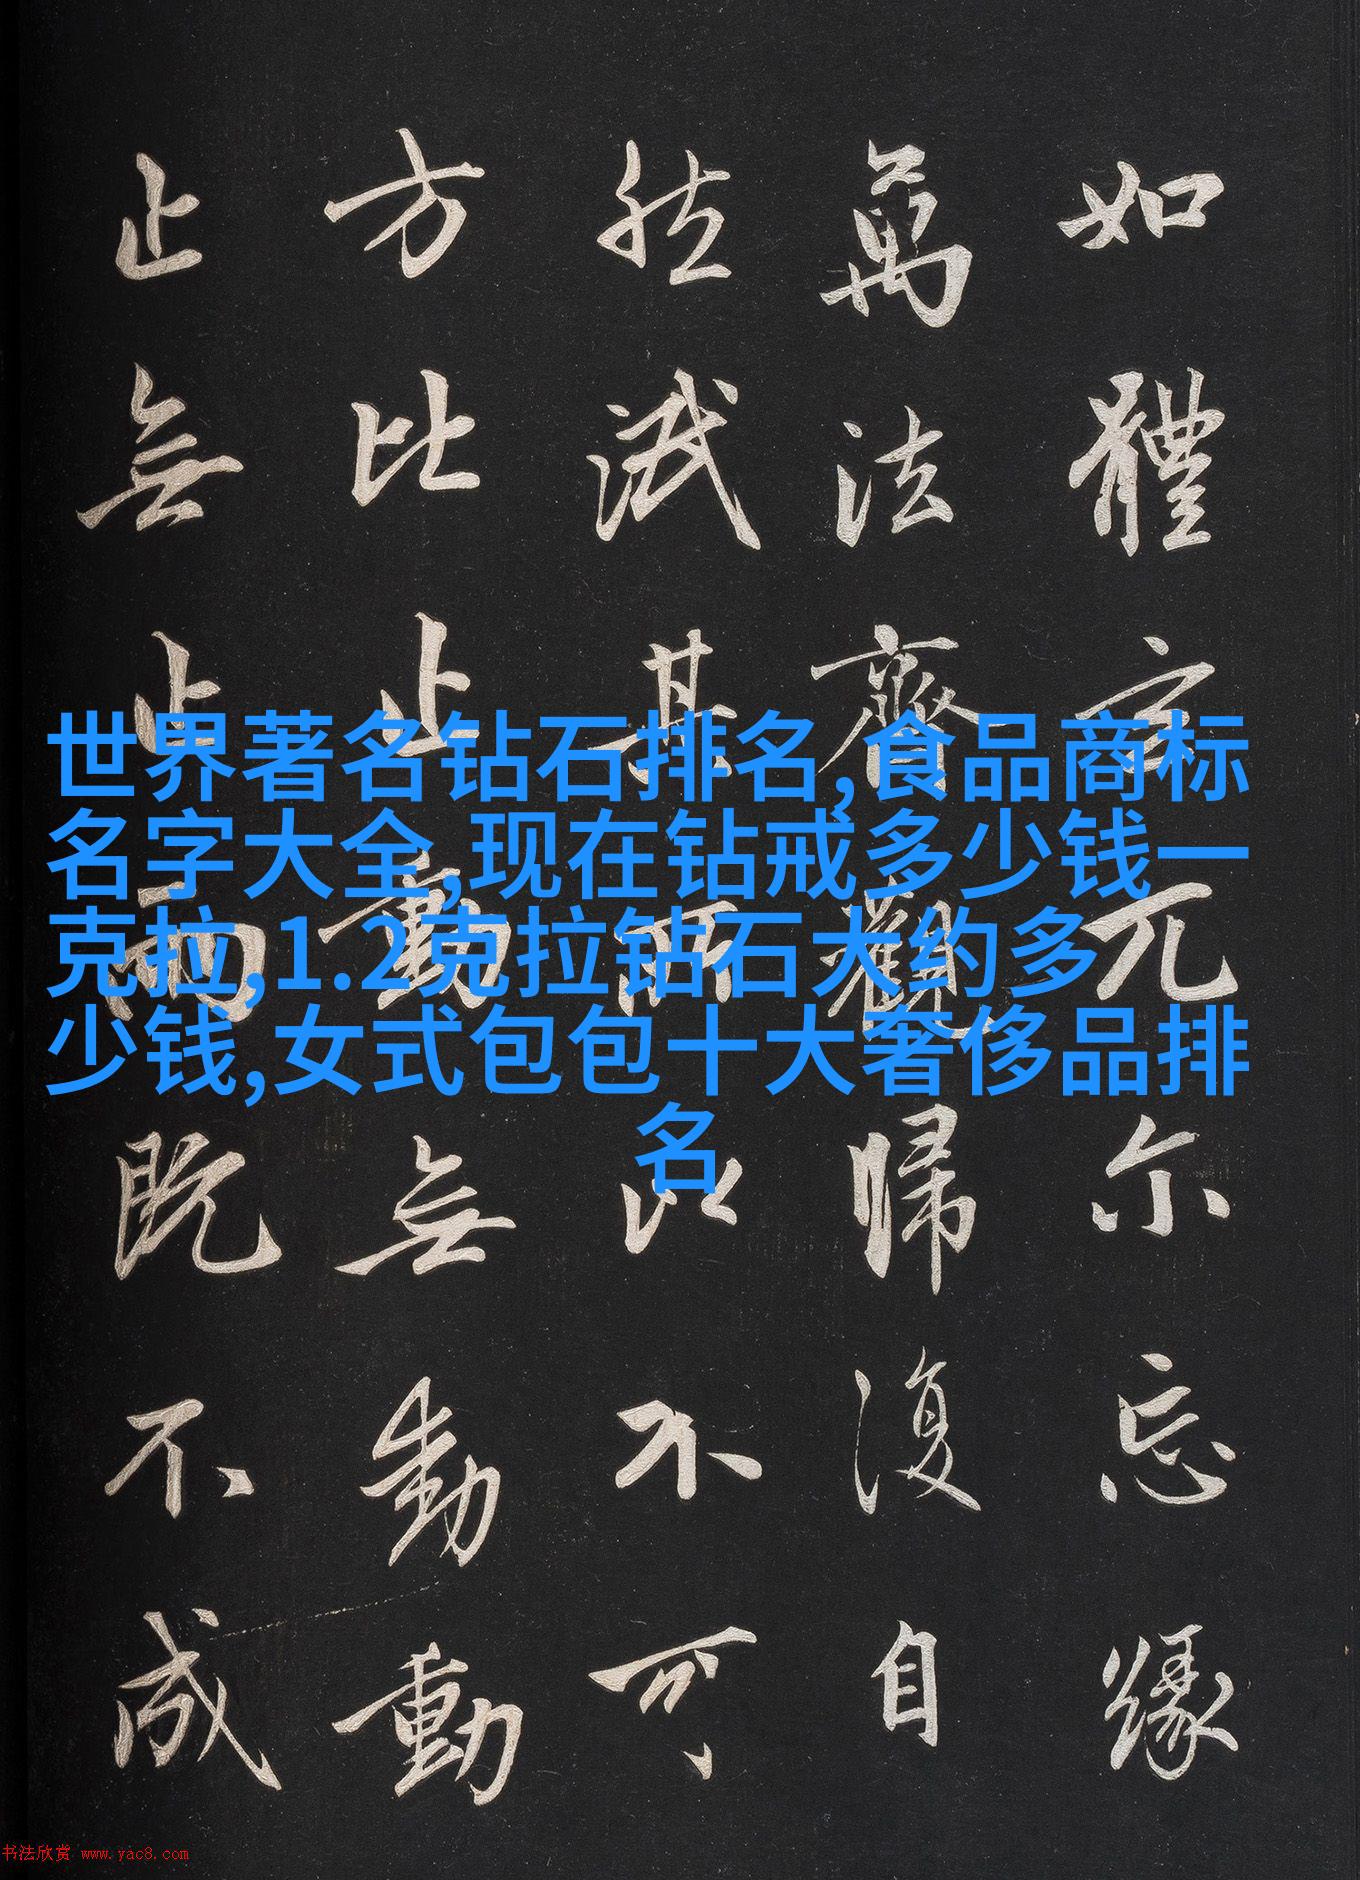 如體玄兀尔忘緣
萬法齊觀歸復自
然泯其所以不可
方比止動無動動
止無止兩既不成
世界著名钻石排名,食品商标
名字大全,现在钻戒多少钱一
克拉,1.2克拉钻石大约多
少钱,女式包包十大奢侈品排
名
书法欣赏 www.yac8.com